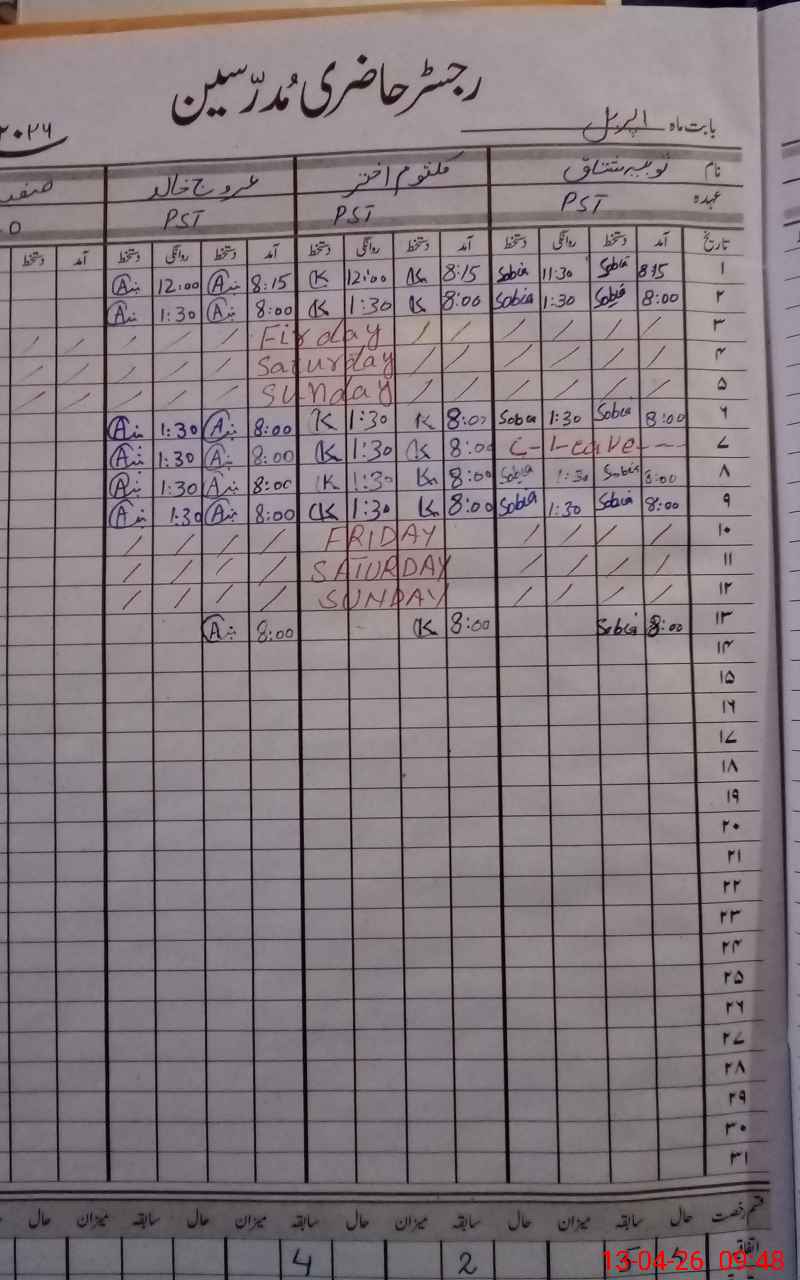 رجسٹر حاضری مُدرّسین
بابت ماہ اپریل ۲۰۲۶
نام ثوبیہ مشتاق کلثوم اختر عروج خالد
عہدہ PST PST PST
تاریخ آمد دستخط روانگی دستخط آمد دستخط روانگی دستخط آمد دستخط روانگی دستخط آمد دستخط
۱ 8:15 Sobia 11:30 Sobia 8:15 K 12:00 K 8:15 A 12:00 A
۲ 8:00 Sobia 1:30 Sobia 8:00 K 1:30 K 8:00 A 1:30 A
۳ / / / / / / Firday / / / / / /
۴ / / / / / / Saturday / / / / / /
۵ / / / / / / Sunday / / / / / /
۶ 8:00 Sobia 1:30 Sobia 8:00 K 1:30 K 8:00 A 1:30 A
۷ C-Leave- 8:00 K 1:30 K 8:00 A 1:30 A
۸ 8:00 Sobia 1:30 Sobia 8:00 K 1:30 K 8:00 A 1:30 A
۹ 8:00 Sobia 1:30 Sobia 8:00 K 1:30 K 8:00 A 1:30 A
۱۰ / / / / FRIDAY / / / /
۱۱ / / / / SATURDAY / / / /
۱۲ / / / / SUNDAY / / / /
۱۳ 8:00 Sobia 8:00 K 8:00 A
۱۴
۱۵
۱۶
۱۷
۱۸
۱۹
۲۰
۲۱
۲۲
۲۳
۲۴
۲۵
۲۶
۲۷
۲۸
۲۹
۳۰
۳۱
قسم رخصت حال سابقہ میزان حال سابقہ میزان حال سابقہ میزان حال سابقہ میزان حال
اتفاقیہ 2 4
13-04-26 09:48